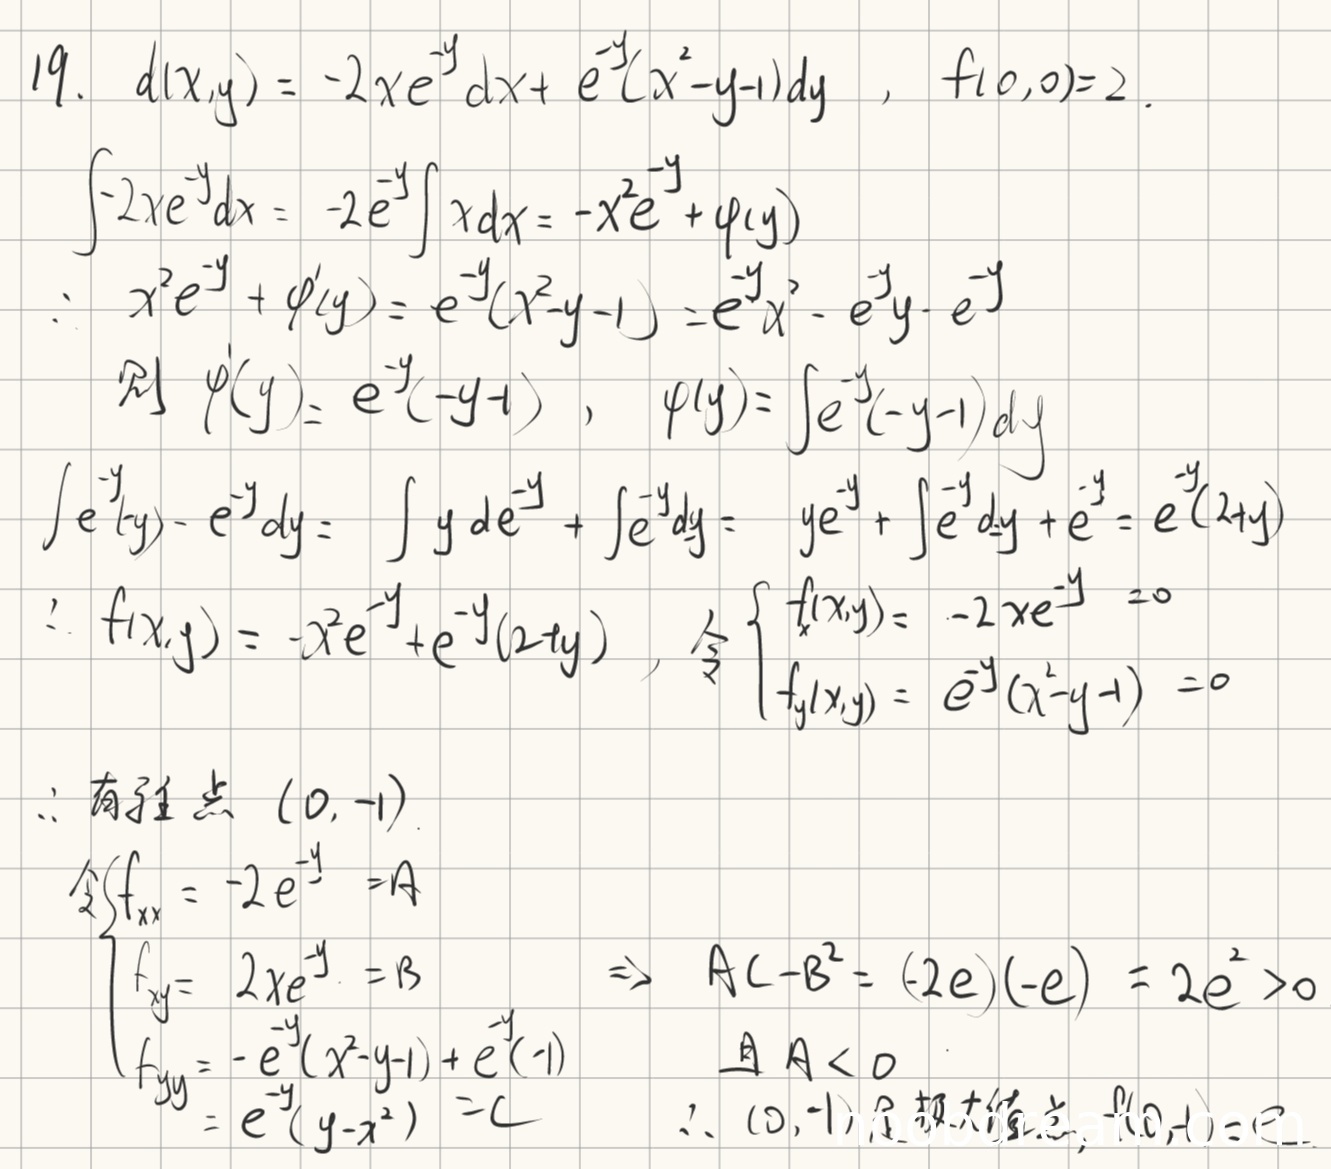 19. d(x,y) = -2xe^{-y}dx + e^{-y}(x²-y-1)dy , f(0,0)=2.
∫-2xe^{-y}dx = -2e^{-y}∫xdx = -x²e^{-y} + φ(y)
∴ x²e^{-y} + φ'(y) = e^{-y}(x²-y-1) = e^{-y}x² - e^{-y}y - e^{-y}
则 φ'(y) = e^{-y}(-y-1) , φ(y) = ∫e^{-y}(-y-1)dy
∫e^{-y}(-y) - e^{-y}dy = ∫y de^{-y} + ∫e^{-y}dy = ye^{-y} + ∫e^{-y}dy + e^{-y} = e^{-y}(2+y)
∴ f(x,y) = -x²e^{-y} + e^{-y}(2+y) , 令 { f_x(x,y) = -2xe^{-y} =0
f_y(x,y) = e^{-y}(x²-y-1) =0
∴ 有驻点 (0,-1).
令{ f_{xx} = -2e^{-y} =A
f_{xy} = 2xe^{-y} =B ⇒ AC-B² = (-2e)(-e) = 2e² >0
f_{yy} = -e^{-y}(x²-y-1) + e^{-y}(-1) 且 A<0
= e^{-y}(y-x²) =C ∴ (0,-1)是极大值点, f(0,-1)=e
noobdream.com